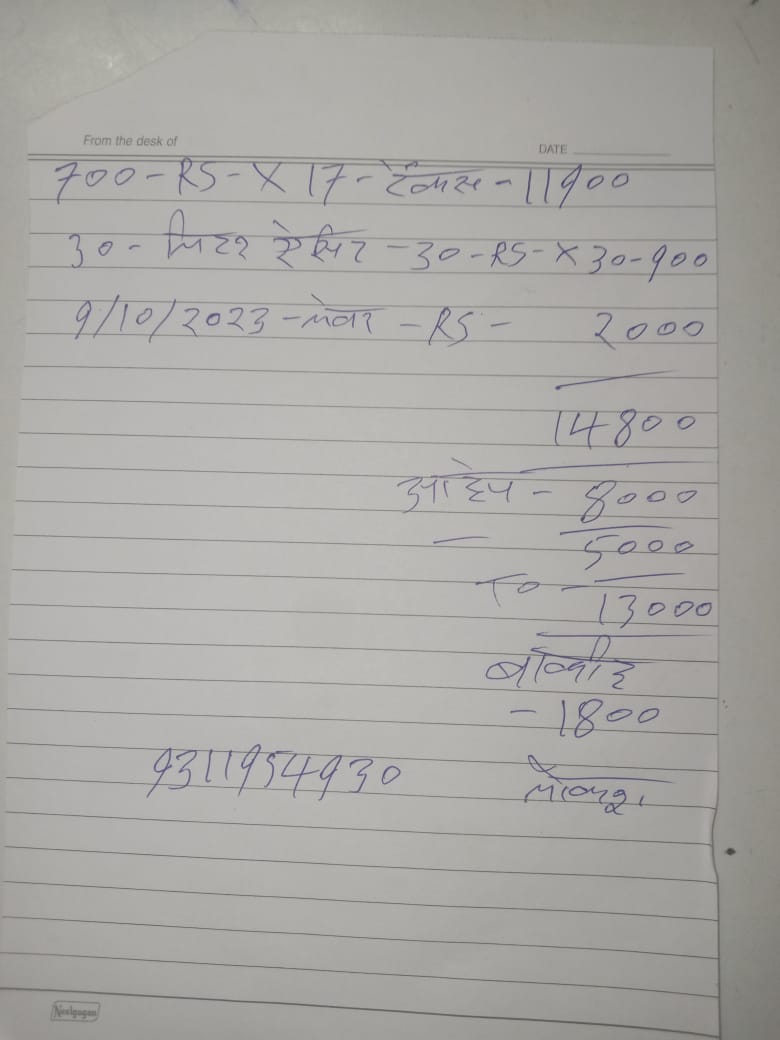 From the desk of
DATE
700-RS-X 17- - 11900
30- मिटर - 30-RS-X 30-900
9/10/2023 - लेवर - RS - 2000
14800
- 8000
5000
TO -
13000
बाकी है
- 1800
9311954930
Neelgagan